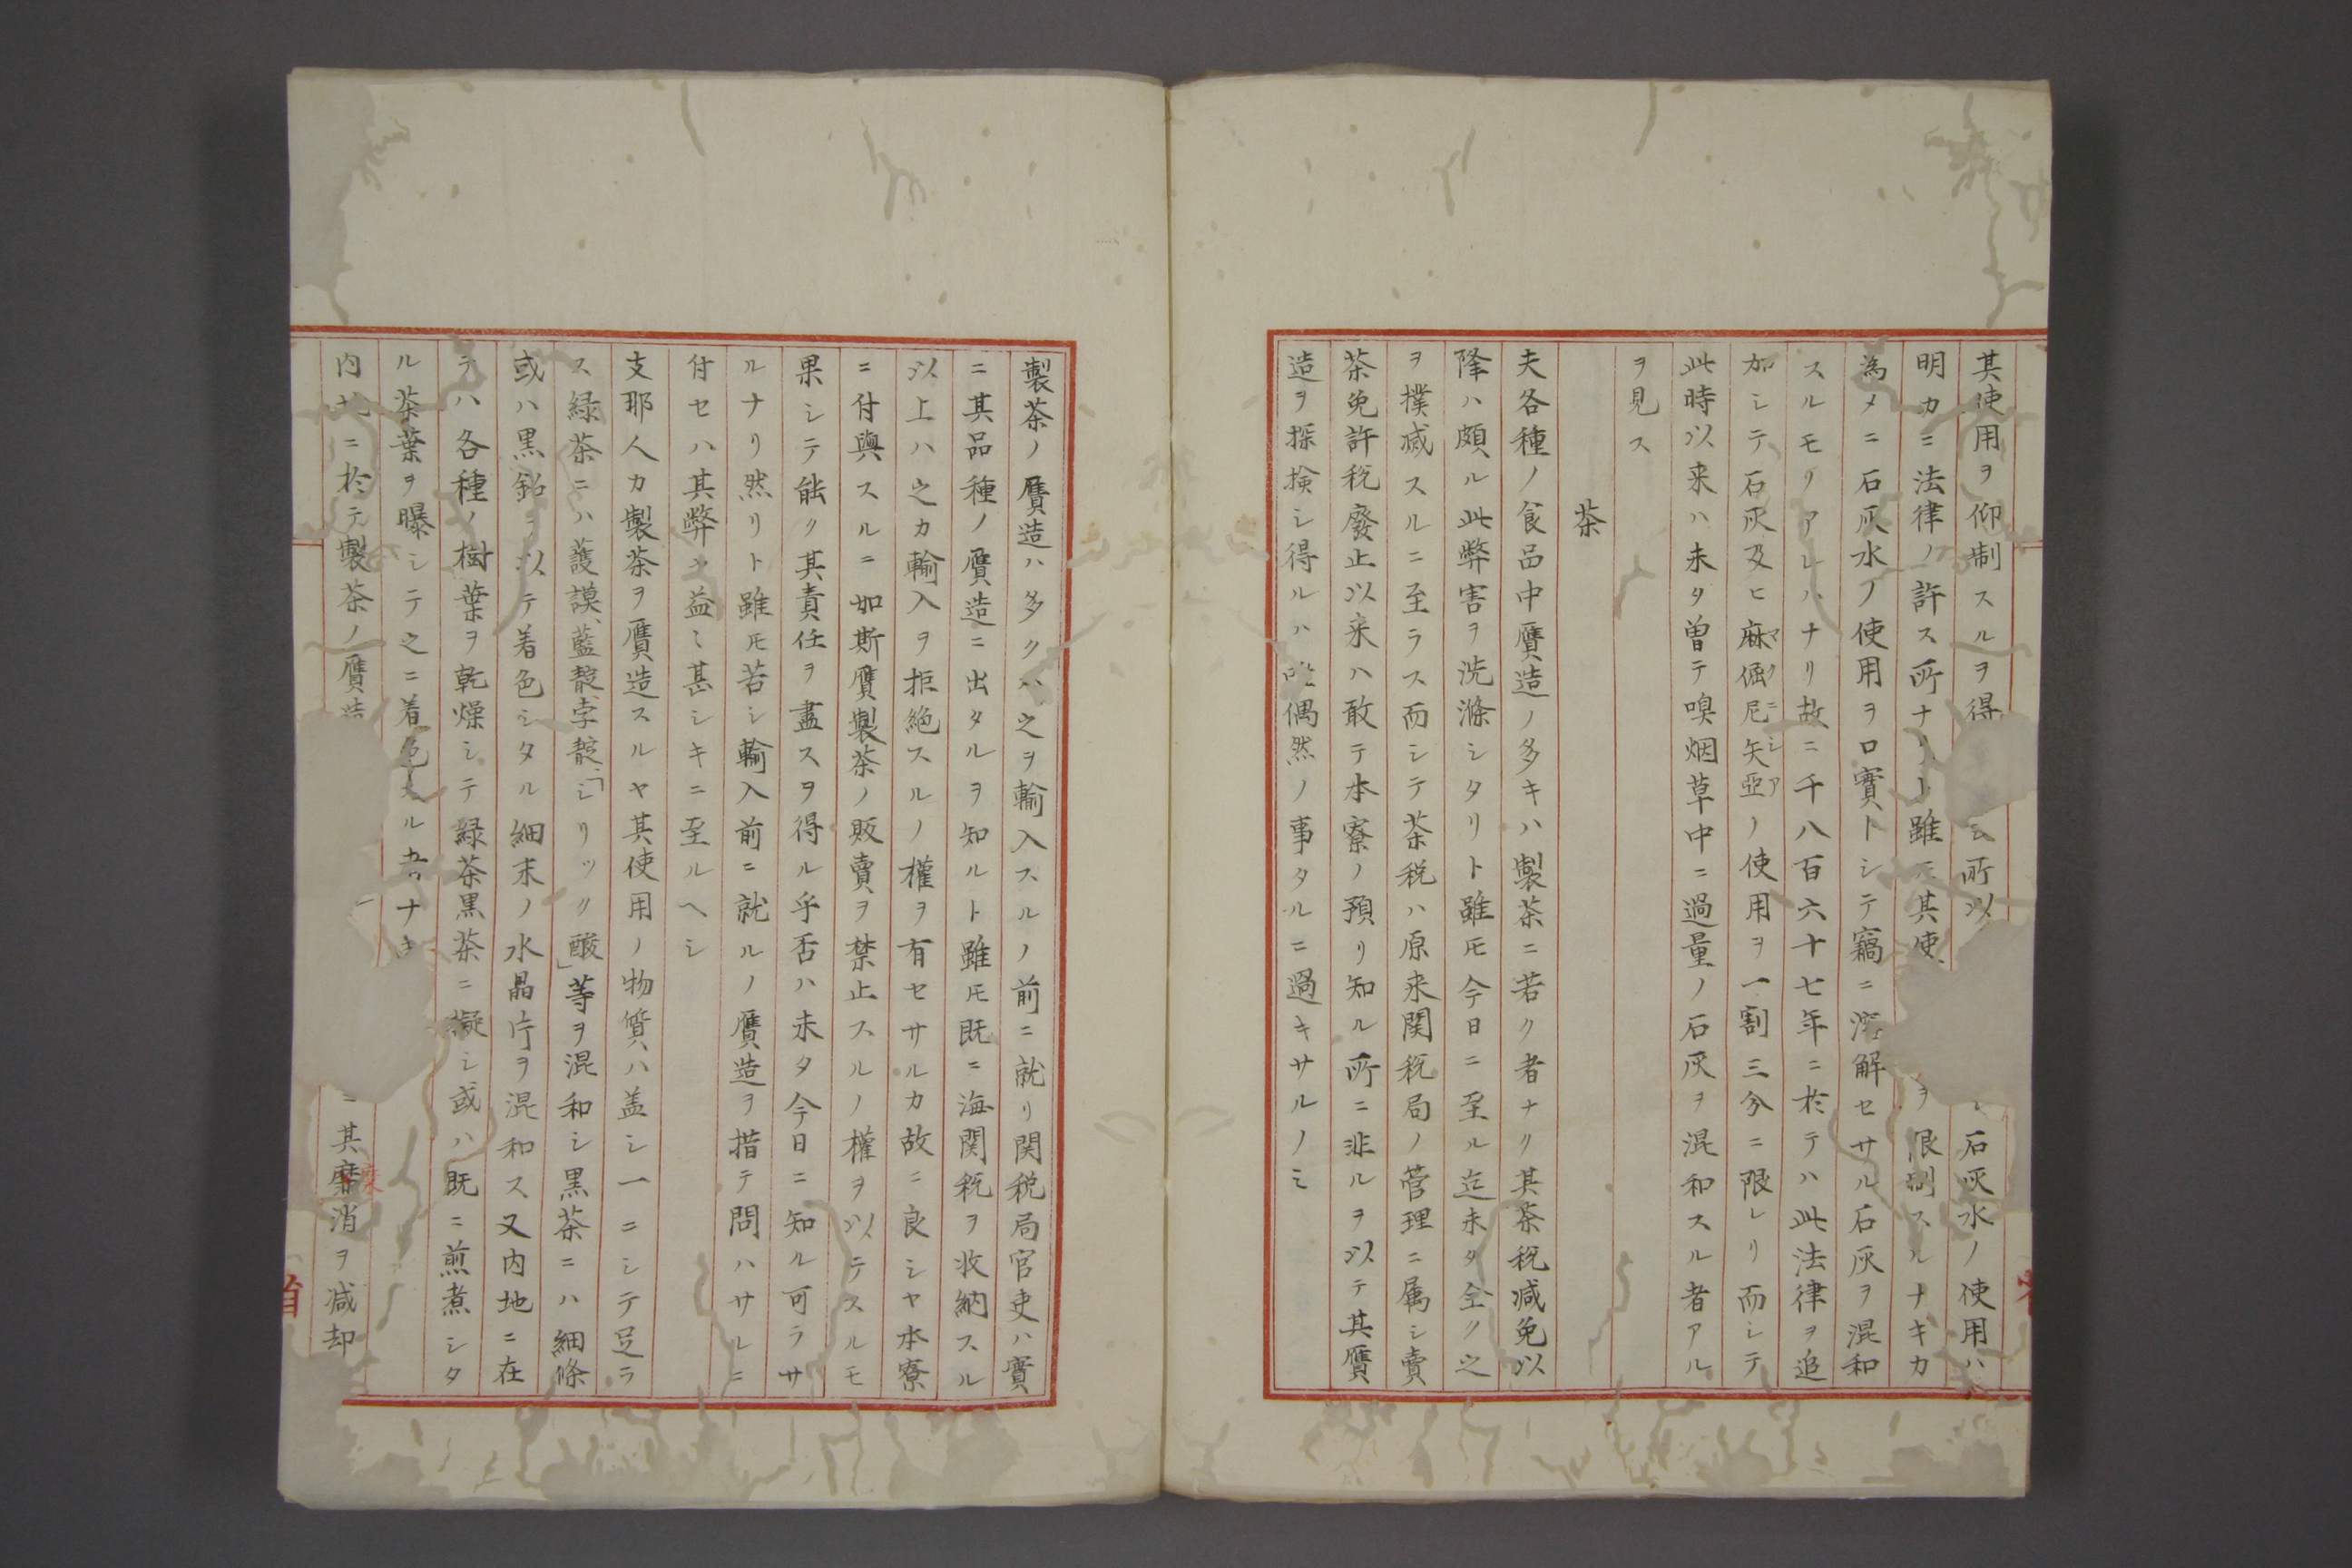 其使用ヲ仰制スルヲ得 所以 石灰水ノ使用ハ
明カニ法律ノ許ス所ナリト雖モ其使 ヲ限制スルナキカ
為メニ石灰水ノ使用ヲ口實トシテ竊ニ溶解セサル石灰ヲ混和
スルモノアレハナリ故ニ千八百六十七年ニ於テハ此法律ヲ追
加シテ石灰及ヒ麻倔尼矢亞ノ使用ヲ一割三分ニ限レリ而シテ
マクニシア
此時以来ハ未タ曽テ嗅烟草中ニ過量ノ石灰ヲ混和スル者アル
ヲ見ス
茶
夫各種ノ食品中贋造ノ多キハ製茶ニ若ク者ナク其茶税減免以
降ハ頗ル此弊害ヲ洗滌シタリト雖モ今日ニ至ル迄未タ全ク之
ヲ撲滅スルニ至ラス而シテ茶税ハ原来関税局ノ管理ニ属シ賣
茶免許税廢止以来ハ敢テ本寮ノ預リ知ル所ニ非ルヲ以テ其贋
造ヲ探検シ得ルハ 偶然ノ事タルニ過キサルノミ
製茶ノ贋造ハ多クハ之ヲ輸入スルノ前ニ就リ関税局官吏ハ實
ニ其品種ノ贋造ニ出タルヲ知ルト雖モ既ニ海関税ヲ收納スル
以上ハ之カ輸入ヲ拒絶スルノ權ヲ有セサルカ故ニ良シヤ本寮
ニ付與スルニ如斯贋製茶ノ販賣ヲ禁止スルノ權ヲ以テスルモ
果シテ能ク其責任ヲ盡スヲ得ル乎否ハ未タ今日ニ知ル可ラサ
ルナリ然リト雖モ若シ輸入前ニ就ルノ贋造ヲ措テ問ハサルニ
付セハ其弊ヤ益ミ甚シキニ至ルヘシ
支那人カ製茶ヲ贋造スルヤ其使用ノ物質ハ盖シ一ニシテ足ラ
ス緑茶ニハ護謨、藍靛、孛靛、「シリック酸」等ヲ混和シ黒茶ニハ細條
或ハ黒鉛ヲ以テ着色シタル細末ノ水晶片ヲ混和ス又内地ニ在
テハ各種ノ樹葉ヲ乾燥シテ緑茶黒茶ニ擬シ或ハ既ニ煎煮シタ
ル茶葉ヲ曝シテ之ニ着色スル者ナキ
内地ニ於テ製茶ノ贋造 ニ其靡消ヲ減却